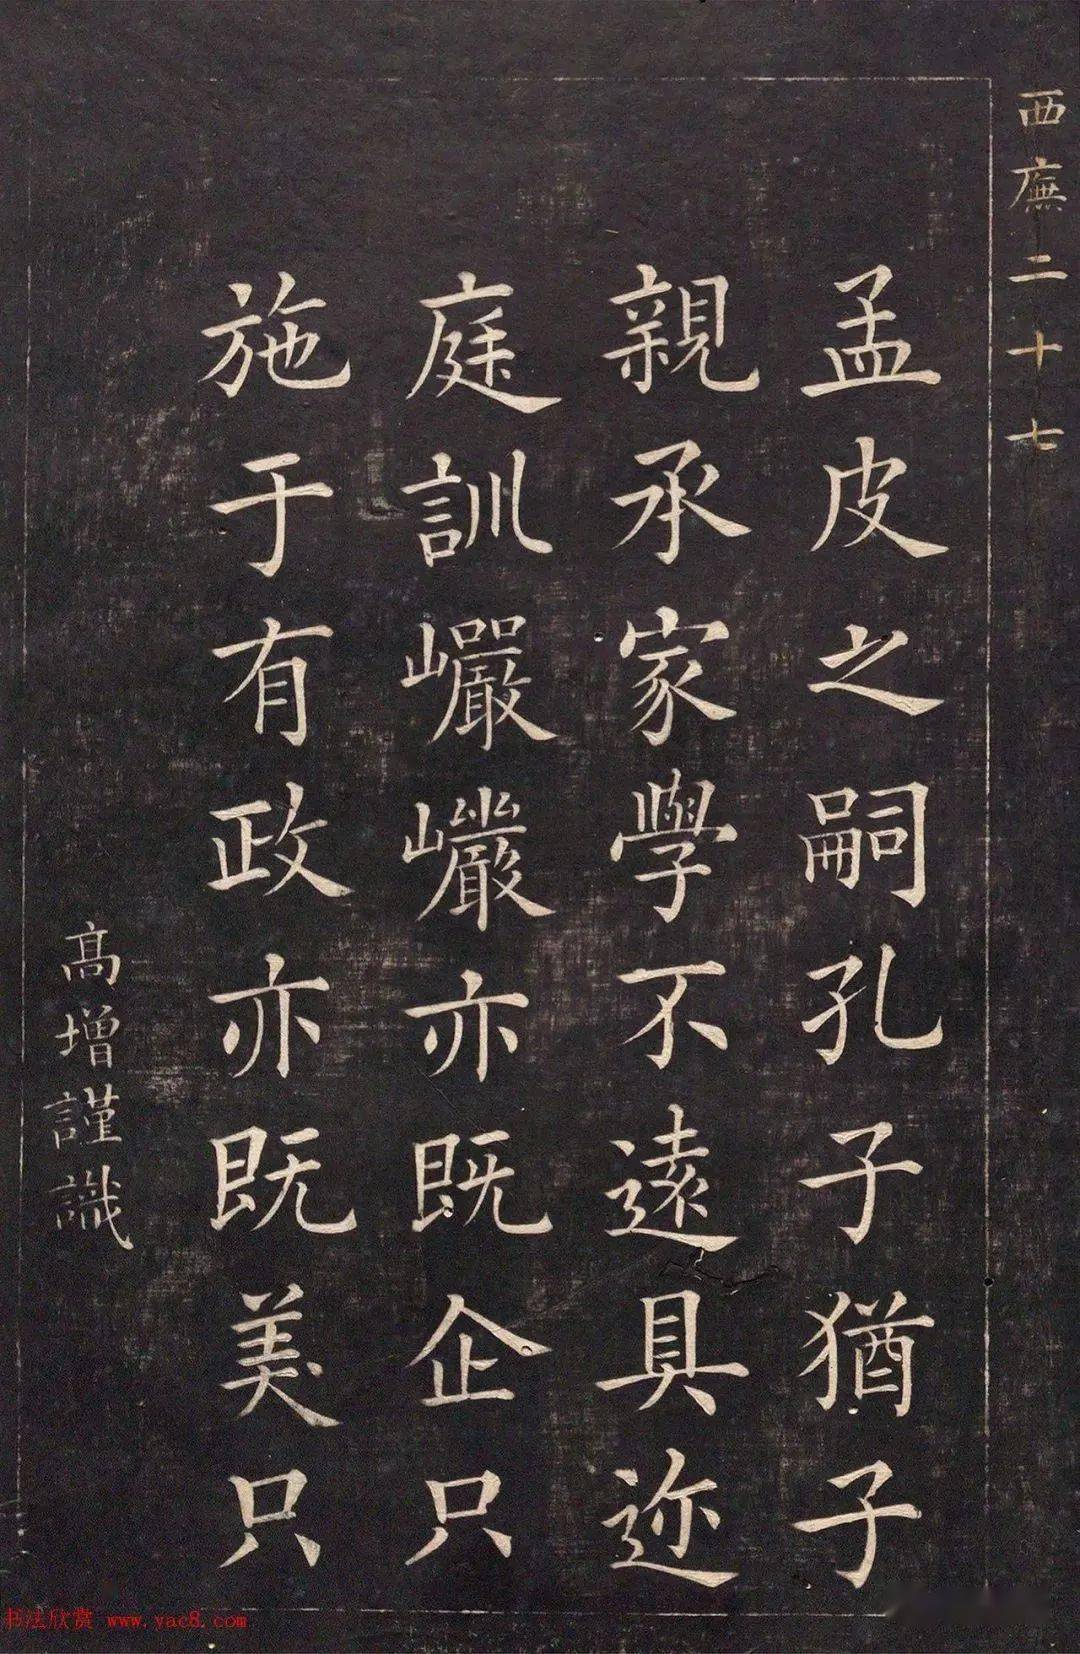 西廡二十七
孟皮之嗣孔子猶子
親承家學不遠具迩
庭訓巗巗亦既企只
施于有政亦既美只
高增謹識
书法欣赏 www.yac8.com